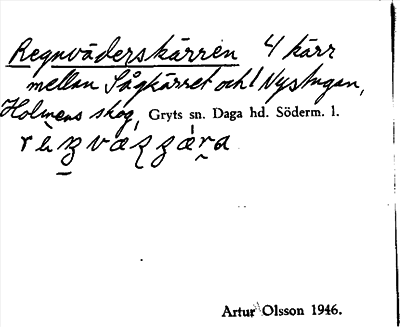 Regnväderskärren 4 kärr
mellan Sågkärret och Nystugan,
Holmens skog, Gryts sn. Daga hd. Söderm. l.
Artur Olsson 1946.